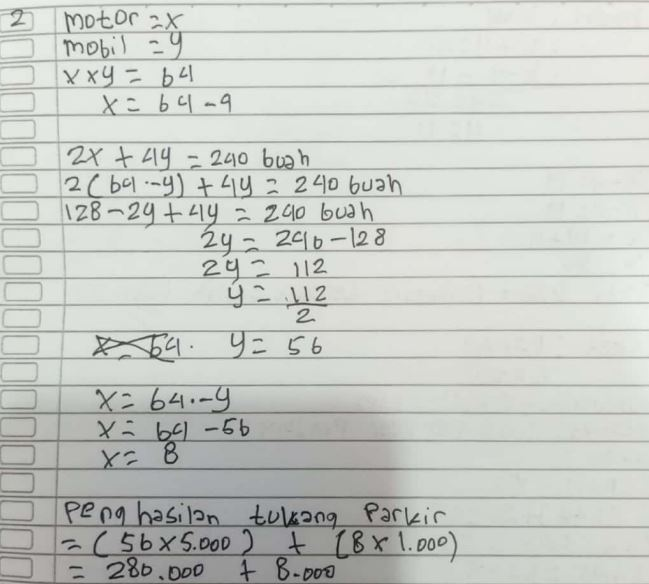 2 motor = x
mobil = y
x x y = 64
x = 64 - 9
2x + 4y = 240 buah
2(64 - y) + 4y = 240 buah
128 - 2y + 4y = 240 buah
2y = 240 - 128
2y = 112
y = 112
2
y = 56
x = 64 - y
x = 64 - 56
x = 8
Penghasilan tukang Parkir
= (56 x 5.000) + (8 x 1.000)
= 280.000 + 8.000